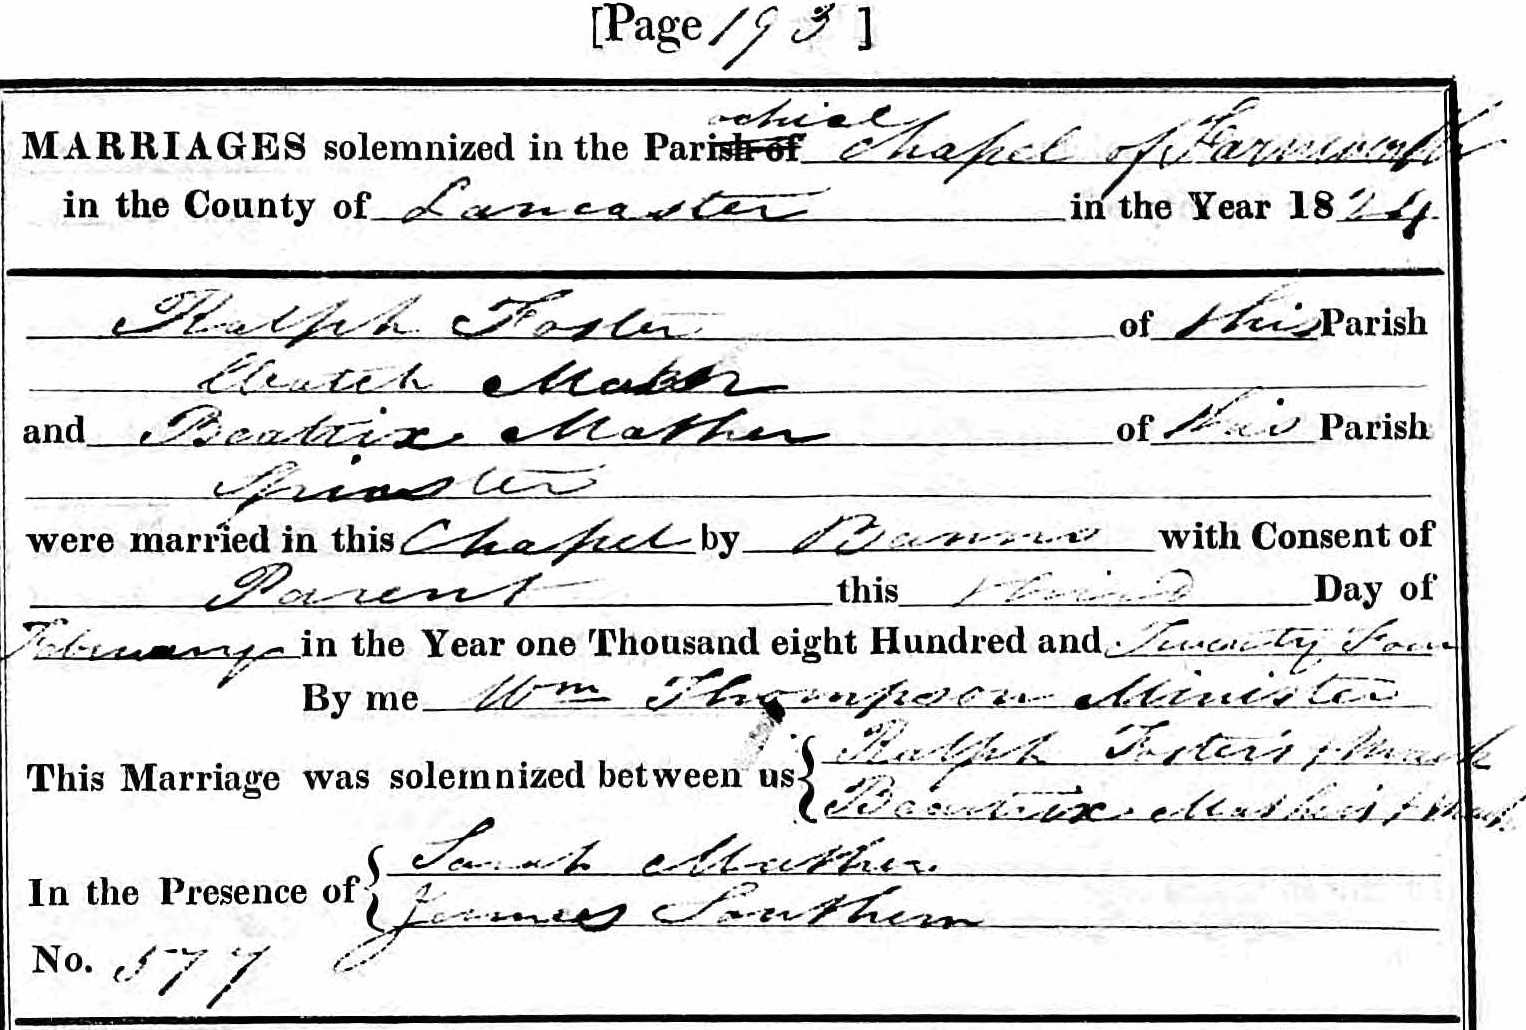 [Page 193]
MARRIAGES solemnized in the Parish of ochial Chapel of Farnworth
in the County of Lancaster in the Year 1824
Ralph Foster of this Parish
Watch Maker
and Beatrix Mather of this Parish
Spinster
were married in this Chapel by Banns with Consent of
Parent this third Day of
February in the Year one Thousand eight Hundred and Twenty Four
By me Wm Thompson Minister
This Marriage was solemnized between us { Ralph Foster's + Mark
Beatrix Mather's + Mark
In the Presence of { Sarah Mather
James Southern
No. 577